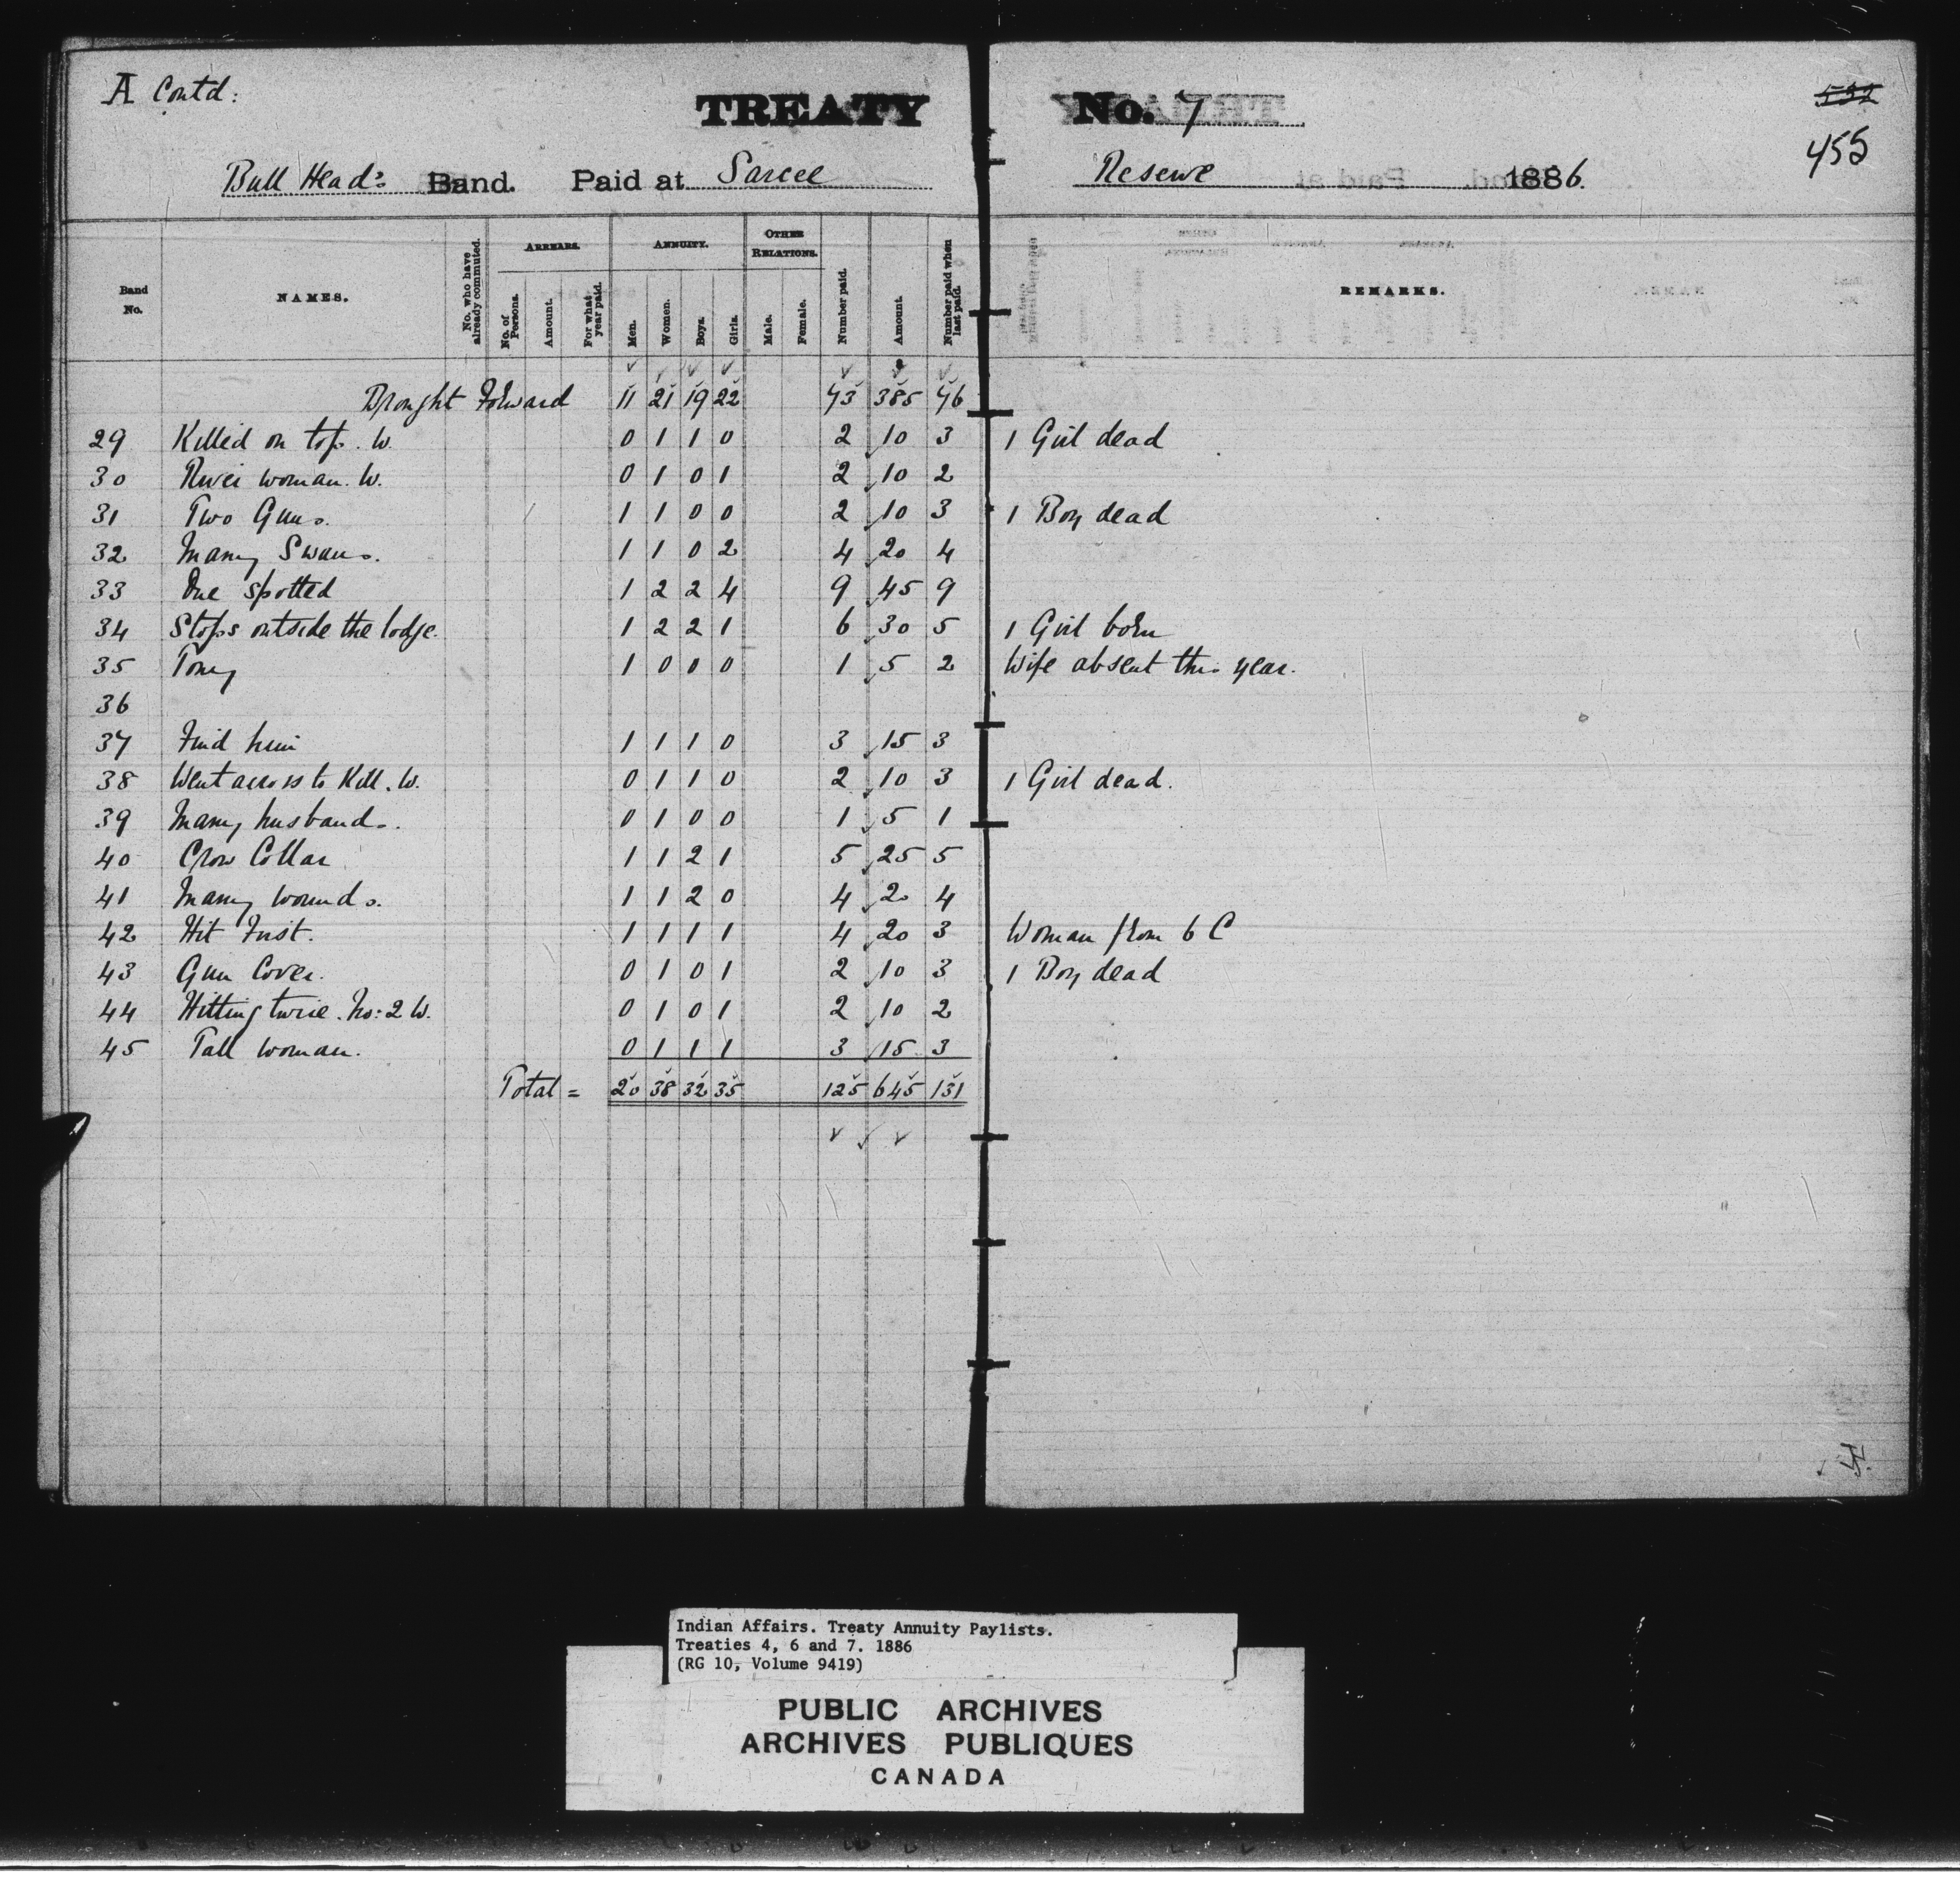 A Contd:
TREATY No. 7
532
455
Bull Head's Band. Paid at Sarcee Reserve 1886.
Band No. NAMES. No. who have already commuted. ARREARS. No. of Persons. Amount. For what year paid. ANNUITY. Men. Women. Boys. Girls. OTHER RELATIONS. Male. Female. Number paid. Amount. Number paid when last paid. REMARKS.
Brought Forward 11 21 19 22 73 385 76
29 Killed on top. W. 0 1 1 0 2 10 3 1 Girl dead
30 River woman. W. 0 1 0 1 2 10 2
31 Two Guns. 1 1 0 0 2 10 3 1 Boy dead
32 Many Swans. 1 1 0 2 4 20 4
33 One Spotted 1 2 2 4 9 45 9
34 Stops outside the lodge. 1 2 2 1 6 30 5 1 Girl born
35 Tony 1 0 0 0 1 5 2 Wife absent this year.
36
37 Find him 1 1 1 0 3 15 3
38 Went across to Kill. W. 0 1 1 0 2 10 3 1 Girl dead.
39 Many husbands. 0 1 0 0 1 5 1
40 Crow Collar 1 1 2 1 5 25 5
41 Many wounds. 1 1 2 0 4 20 4
42 Hit First. 1 1 1 1 4 20 3 Woman from 6 C
43 Gun Cover. 0 1 0 1 2 10 3 1 Boy dead
44 Hitting twice. No: 2 W. 0 1 0 1 2 10 2
45 Tall woman. 0 1 1 1 3 15 3
Total = 20 38 32 35 125 645 131
Indian Affairs. Treaty Annuity Paylists.
Treaties 4, 6 and 7. 1886
(RG 10, Volume 9419)
PUBLIC ARCHIVES
ARCHIVES PUBLIQUES
CANADA